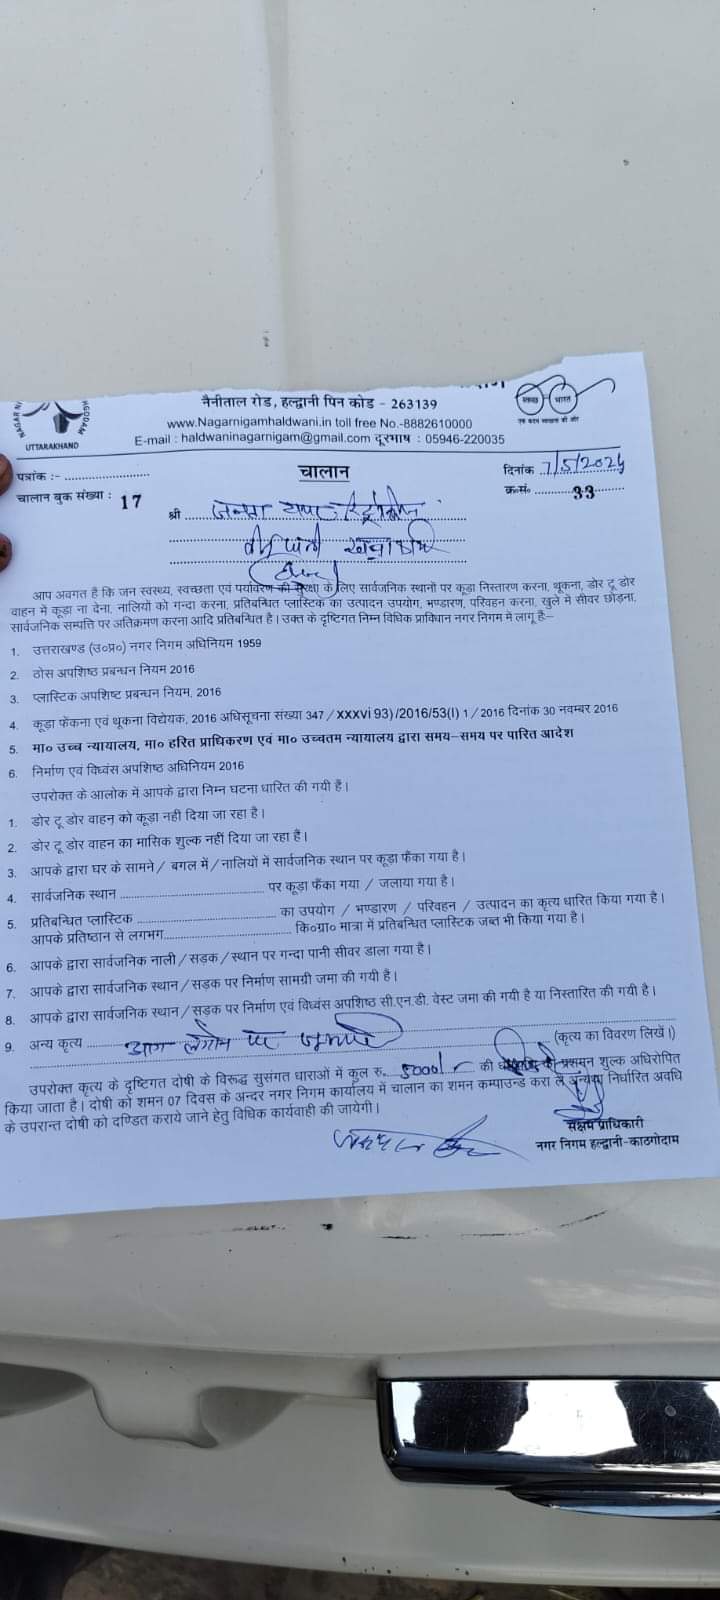 नैनीताल रोड, हल्द्वानी पिन कोड - 263139
www.Nagarnigamhaldwani.in toll free No.-8882610000
E-mail : haldwaninagarnigam@gmail.com दूरभाष : 05946-220035
UTTARAKHAND
स्वच्छ भारत
एक कदम स्वच्छता की ओर
पत्रांक :-
चालान
दिनांक 7/5/2024
चालान बुक संख्या : 17
क्र०सं० 33
श्री
आप अवगत है कि जन स्वास्थ्य, स्वच्छता एवं पर्यावरण की सुरक्षा के लिए सार्वजनिक स्थानों पर कूडा निस्तारण करना, थूकना, डोर टू डोर
वाहन में कूडा ना देना, नालियों को गन्दा करना, प्रतिबन्धित प्लास्टिक का उत्पादन उपयोग, भण्डारण, परिवहन करना, खुले में सीवर छोड़ना,
सार्वजनिक सम्पत्ति पर अतिक्रमण करना आदि प्रतिबन्धित है। उक्त के दृष्टिगत निम्न विधिक प्राविधान नगर निगम में लागू हैः-
1. उत्तराखण्ड (उ०प्र०) नगर निगम अधिनियम 1959
2. ठोस अपशिष्ठ प्रबन्धन नियम 2016
3. प्लास्टिक अपशिष्ट प्रबन्धन नियम, 2016
4. कूडा फेंकना एवं थूकना विद्येयक, 2016 अधिसूचना संख्या 347/XXXVi 93)/2016/53(I) 1/2016 दिनांक 30 नवम्बर 2016
5. मा० उच्च न्यायालय, मा० हरित प्राधिकरण एवं मा० उच्चतम न्यायालय द्वारा समय-समय पर पारित आदेश
6. निर्माण एवं विध्वंस अपशिष्ठ अधिनियम 2016
उपरोक्त के आलोक में आपके द्वारा निम्न घटना धारित की गयी हैं।
1. डोर टू डोर वाहन को कूडा नही दिया जा रहा है।
2. डोर टू डोर वाहन का मासिक शुल्क नहीं दिया जा रहा हैं।
3. आपके द्वारा घर के सामने/बगल में/नालियों में सार्वजनिक स्थान पर कूडा फैंका गया है।
4. सार्वजनिक स्थान पर कूडा फैंका गया / जलाया गया है।
5. प्रतिबन्धित प्लास्टिक का उपयोग / भण्डारण / परिवहन / उत्पादन का कृत्य धारित किया गया है।
आपके प्रतिष्ठान से लगभग कि०ग्रा० मात्रा में प्रतिबन्धित प्लास्टिक जब्त भी किया गया है।
6. आपके द्वारा सार्वजनिक नाली/सड़क/स्थान पर गन्दा पानी सीवर डाला गया है।
7. आपके द्वारा सार्वजनिक स्थान/सड़क पर निर्माण सामग्री जमा की गयी है।
8. आपके द्वारा सार्वजनिक स्थान/सड़क पर निर्माण एवं विध्वंस अपशिष्ठ सी.एन.डी. वेस्ट जमा की गयी है या निस्तारित की गयी है।
9. अन्य कृत्य (कृत्य का विवरण लिखें।)
उपरोक्त कृत्य के दृष्टिगत दोषी के विरूद्ध सुसंगत धाराओं में कुल रु. 5000/- की प्रशमन शुल्क अधिरोपित
किया जाता है। दोषी को शमन 07 दिवस के अन्दर नगर निगम कार्यालय में चालान का शमन कम्पाउन्ड करा लें अन्यथा निर्धारित अवधि
के उपरान्त दोषी को दण्डित कराये जाने हेतु विधिक कार्यवाही की जायेगी।
सक्षम प्राधिकारी
नगर निगम हल्द्वानी-काठगोदाम